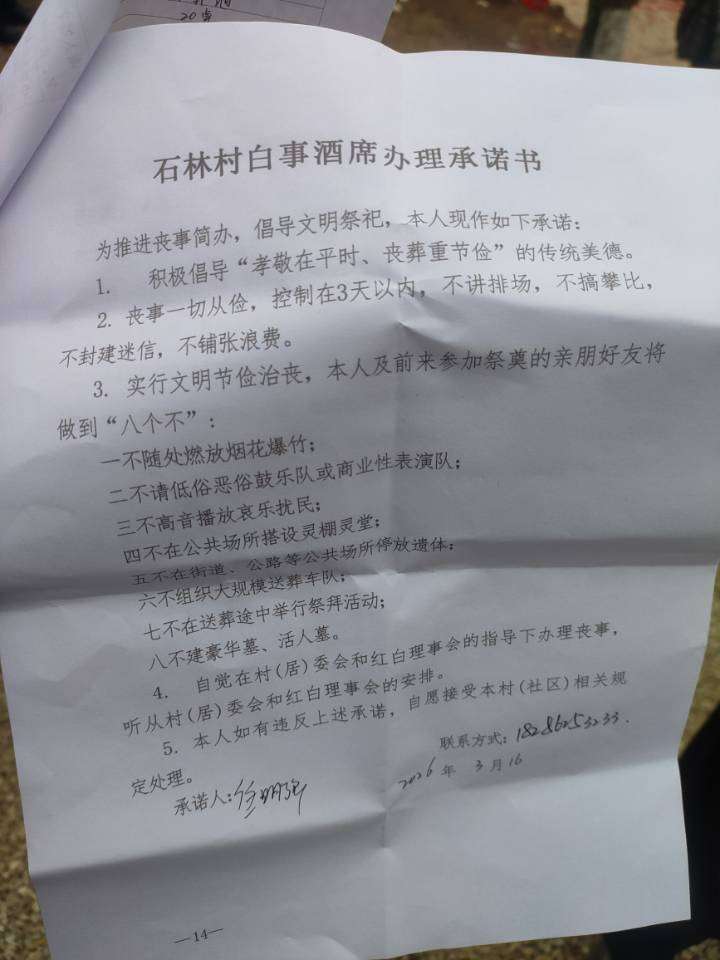 20桌
石林村白事酒席办理承诺书
为推进丧事简办，倡导文明祭祀，本人现作如下承诺：
1. 积极倡导“孝敬在平时、丧葬重节俭”的传统美德。
2. 丧事一切从俭，控制在3天以内，不讲排场，不搞攀比，
不封建迷信，不铺张浪费。
3. 实行文明节俭治丧，本人及前来参加祭奠的亲朋好友将
做到“八个不”：
一不随处燃放烟花爆竹；
二不请低俗恶俗鼓乐队或商业性表演队；
三不高音播放哀乐扰民；
四不在公共场所搭设灵棚灵堂；
五不在街道、公路等公共场所停放遗体；
六不组织大规模送葬车队；
七不在送葬途中举行祭拜活动；
八不建豪华墓、活人墓。
4. 自觉在村(居)委会和红白理事会的指导下办理丧事，
听从村(居)委会和红白理事会的安排。
5. 本人如有违反上述承诺，自愿接受本村(社区)相关规
定处理。
联系方式：18286253233.
承诺人：徐明强
2026年 3月16
—14—